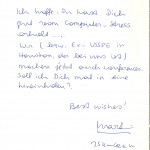 Ich hoffe, Du hast Dich
gut vom Computer-Stress
erholt ....
Wir (bzw. Ex-USPS in
Houston, der bei uns ist)
machen jetzt auch
Soll ich Dich mal in eine
hineinholen?
Best wishes!
Mark